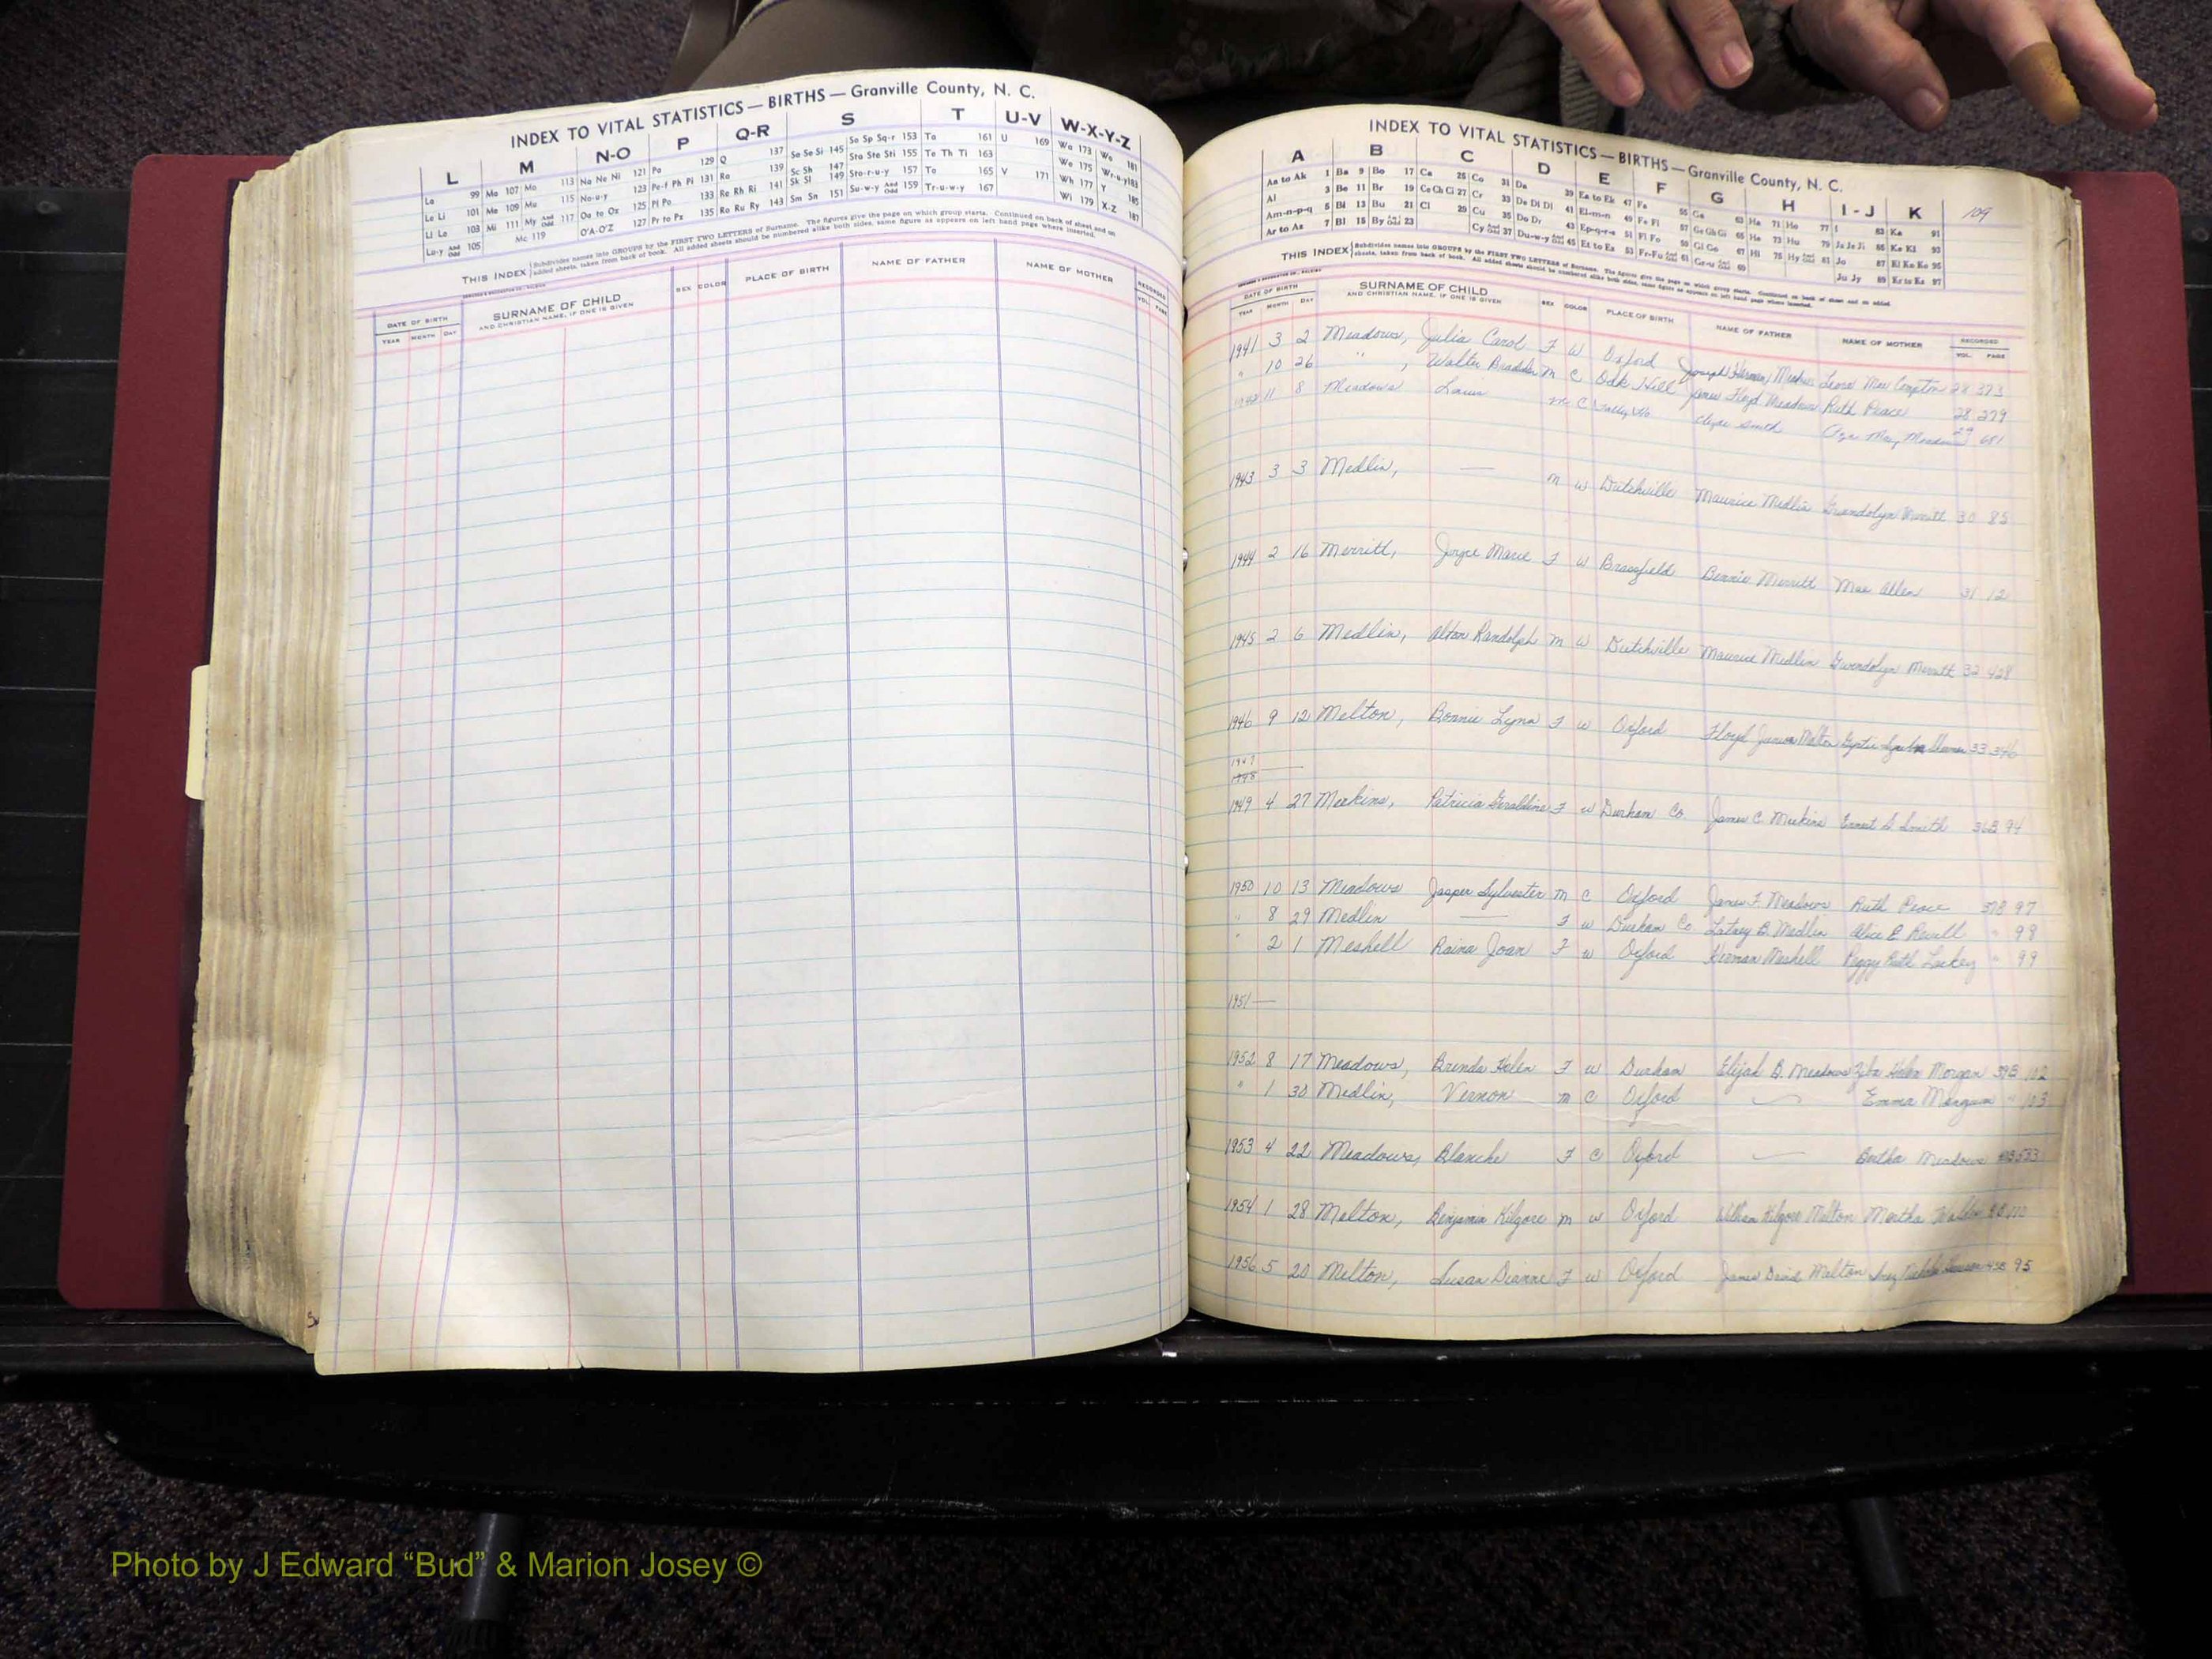 INDEX TO VITAL STATISTICS — BIRTHS — Granville County, N. C.
L M N-O P Q-R S T U-V W-X-Y-Z
La 99 Ma 107 Mo 113 Na Ne Ni 121 Pa 129 Q 137 Sa Se Si 145 So Sp Sq-r 153 Ta 161 U 169 Wa 173 Wo 181
Le Li 101 Me 109 Mu 115 No-u-y 123 Pe-f Ph Pi 131 Ra 139 Sc Sh 147 Sta Ste Sti 155 Te Th Ti 163 We 175 Wr-u-y 183
Ll Lo 103 Mi 111 My And Odd 117 Oa to Oz 125 Pl Po 133 Re Rh Ri 141 Sk Sl 149 Sto-r-u-y 157 To 165 V 171 Wh 177 Y 185
Lu-y And Odd 105 Mc 119 O'A-O'Z 127 Pr to Pz 135 Ro Ru Ry 143 Sm Sn 151 Su-w-y And Odd 159 Tr-u-w-y 167 Wi 179 X-Z 187
THIS INDEX Subdivides names into GROUPS by the FIRST TWO LETTERS of Surname. The figures give the page on which group starts. Continued on back of sheet and on
added sheets, taken from back of book. All added sheets should be numbered alike both sides, same figure as appears on left hand page where inserted.
DATE OF BIRTH SURNAME OF CHILD SEX COLOR PLACE OF BIRTH NAME OF FATHER NAME OF MOTHER RECORDED
YEAR MONTH DAY AND CHRISTIAN NAME, IF ONE IS GIVEN VOL. PAGE
INDEX TO VITAL STATISTICS — BIRTHS — Granville County, N. C.
109
A B C D E F G H I-J K
Aa to Ak 1 Ba 9 Bo 17 Ca 25 Co 31 Da 39 Ea to Ek 47 Fa 55 Ga 63 Ha 71 Ho 77 I 83 Ka 91
Al 3 Be 11 Br 19 Ce Ch Ci 27 Cr 33 De Di Dl 41 El-m-n 49 Fe Fi 57 Ge Gh Gi 65 He 73 Hu 79 Ja Je Ji 85 Ke Kl 93
Am-n-p-q 5 Bi 13 Bu 21 Cl 29 Cu 35 Do Dr 43 Ep-q-r-s 51 Fl Fo 59 Gl Go 67 Hi 75 Hy And Odd 81 Jo 87 Kl Kn Ko 95
Ar to Az 7 Bl 15 By And Odd 23 Cy And Odd 37 Du-w-y And Odd 45 Et to Ez 53 Fr-Fu And Odd 61 Gr-u And Odd 69 Ju Jy 89 Kr to Kz 97
THIS INDEX Subdivides names into GROUPS by the FIRST TWO LETTERS of Surname. The figures give the page on which group starts. Continued on back of sheet and on added
sheets, taken from back of book. All added sheets should be numbered alike both sides, same figure as appears on left hand page where inserted.
DATE OF BIRTH SURNAME OF CHILD SEX COLOR PLACE OF BIRTH NAME OF FATHER NAME OF MOTHER RECORDED
YEAR MONTH DAY AND CHRISTIAN NAME, IF ONE IS GIVEN VOL. PAGE
1941 3 2 Meadows, Julia Carol F W Oxford Joseph Herman Meadows Leona Mae Compton 28 373
" 10 26 " , Walter M C Oak Hill James Floyd Meadows Ruth Peace 28 279
11 8 Meadows Louis M C Clyde Smith May Meadows 29 681
1943 3 3 Medlin, — M W Dutchville Maurice Medlin Gwendolyn Merritt 30 85
1944 2 16 Merritt, Joyce Marie F W Brassfield Bennie Merritt Mae Allen 31 12
1945 2 6 Medlin, Alton Randolph M W Dutchville Maurice Medlin Gwendolyn Merritt 32 428
1946 9 12 Melton, Bonnie Lynn F W Oxford Floyd James Melton 33 346
1947
1948 —
1949 4 27 Meekins, Patricia Geraldine F W Durham Co. James C. Meekins Smith 36B 94
1950 10 13 Meadows Jasper Sylvester M C Oxford James F. Meadows Ruth Peace 37B 97
" 8 29 Medlin — F W Durham Co. Medlin Alice E. Revell " 98
" 2 1 Meshell Raina Joan F W Oxford Herman Meshell Peggy Ruth Lackey " 99
1951 —
1952 8 17 Meadows, Brenda Helen F W Durham Elijah B. Meadows Helen Morgan 39B 102
" 1 30 Medlin, Vernon M C Oxford — Emma Mangum " 103
1953 4 22 Meadows, Blanche F C Oxford — Bertha Meadows 533
1954 1 28 Melton, Benjamin Kilgore M W Oxford William Kilgore Melton Martha
1956 5 20 Melton, Susan Dianne F W Oxford James David Melton Inez 95
Photo by J Edward “Bud” & Marion Josey ©